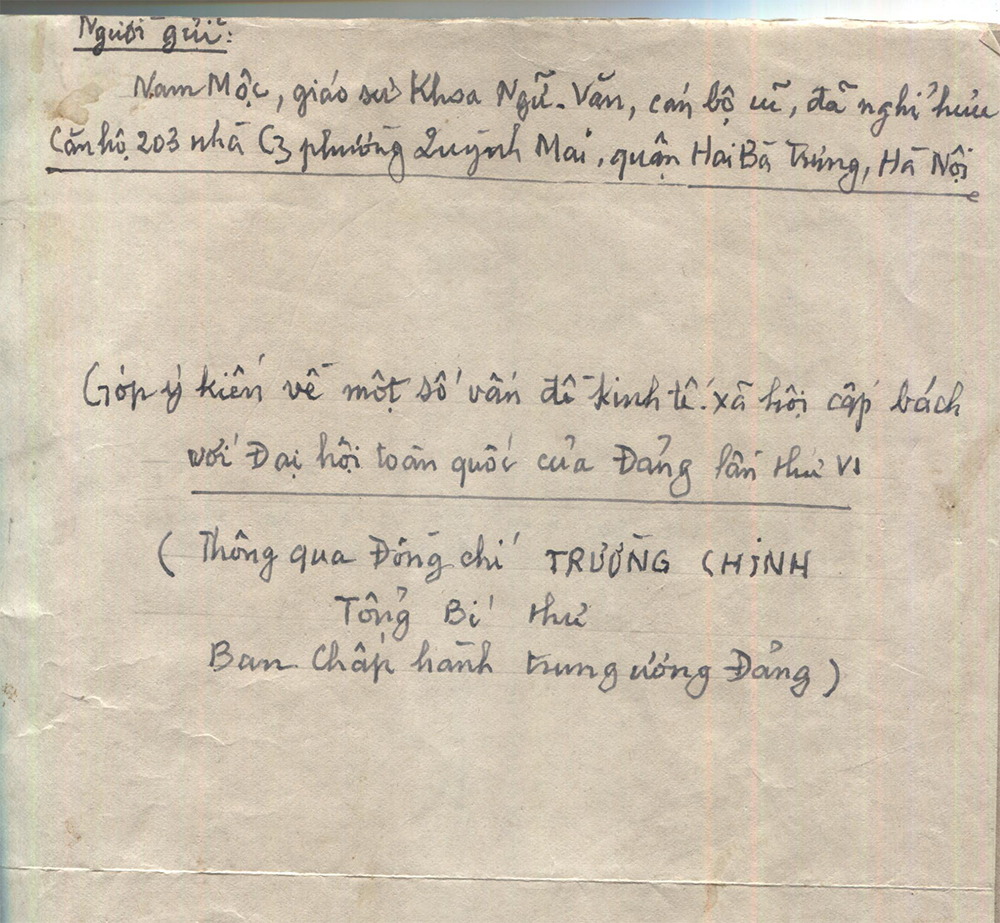 Người gửi:
Nam Mộc, giáo sư Khoa Ngữ-Văn, cán bộ cũ, đã nghỉ hưu
Căn hộ 203 nhà C3 phường Quỳnh Mai, quận Hai Bà Trưng, Hà Nội
Góp ý kiến về một số vấn đề kinh tế-xã hội cấp bách
với Đại hội toàn quốc của Đảng lần thứ VI
(Thông qua Đồng chí TRƯỜNG CHINH
Tổng Bí thư
Ban Chấp hành trung ương Đảng)